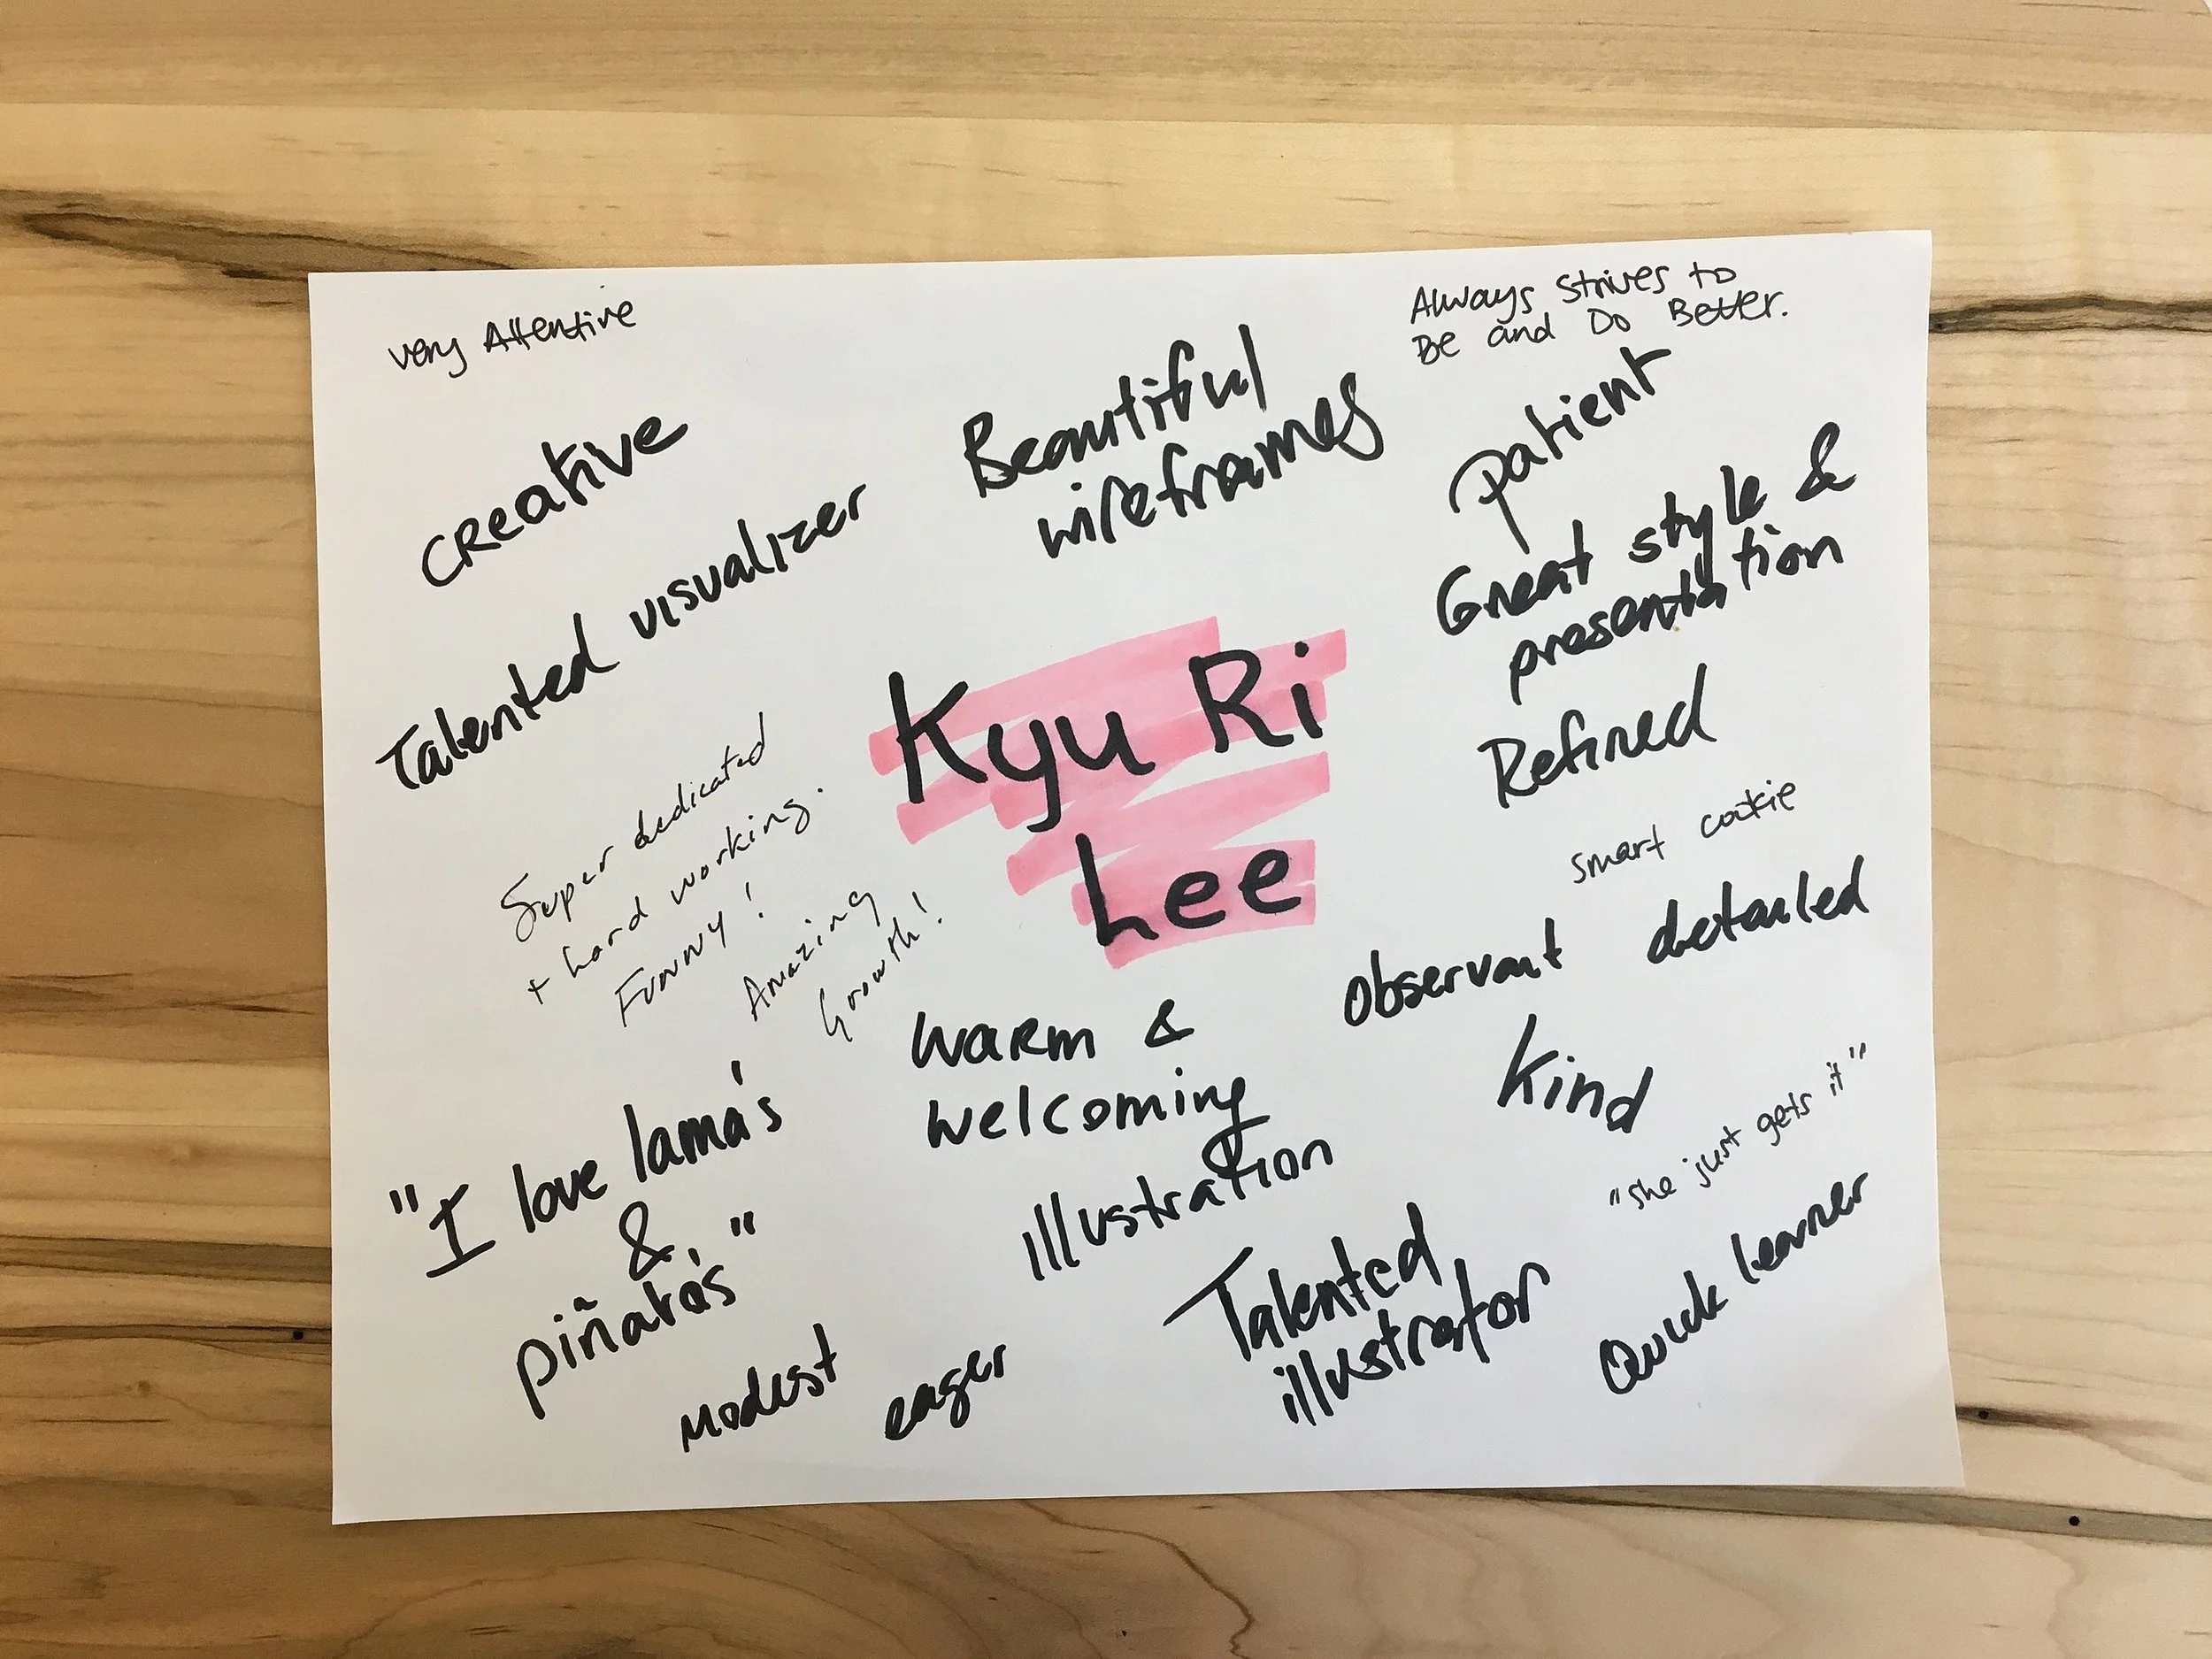 very Attentive
Always Strives to
Be and Do Better.
Creative
Beautiful
wireframes
patient
Talented visualizer
Great style &
presentation
Kyu Ri
Lee
Refined
Super dedicated
+ hard working.
Funny!
Amazing
Growth!
smart cookie
observant detailed
warm &
welcoming
Kind
"I love lama's
&
piñata's"
illustration
"she just gets it"
Talented
illustrator
Quick learner
Modest
eager